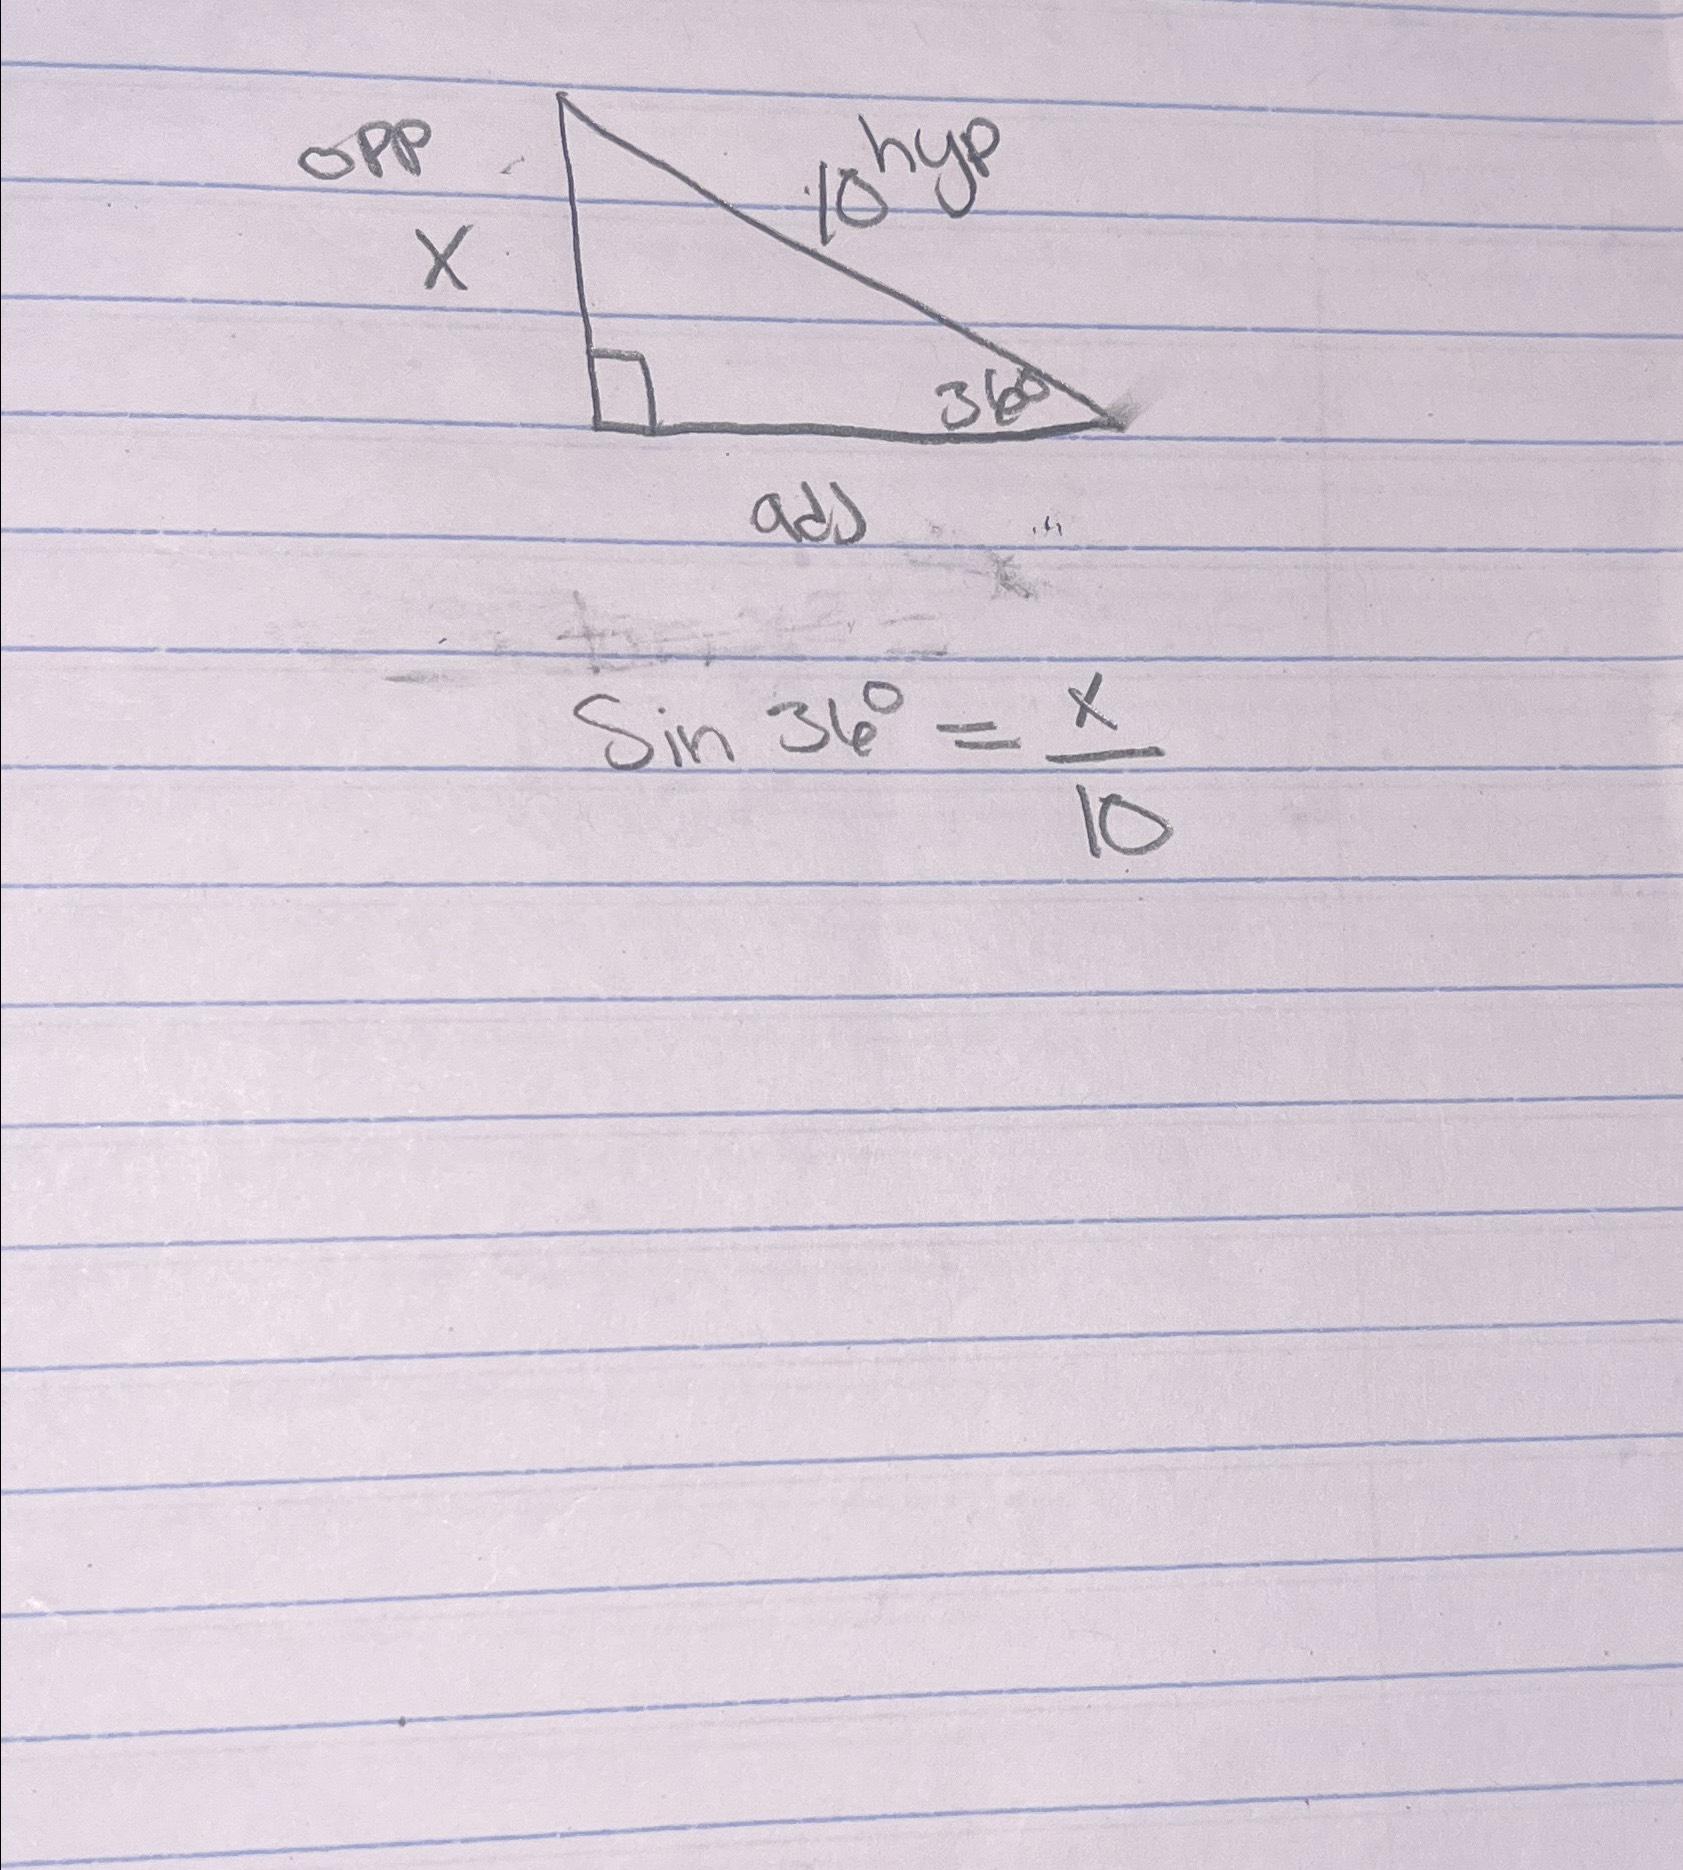 opp
10 hyp
X
36°
adj
Sin 36° = x/10